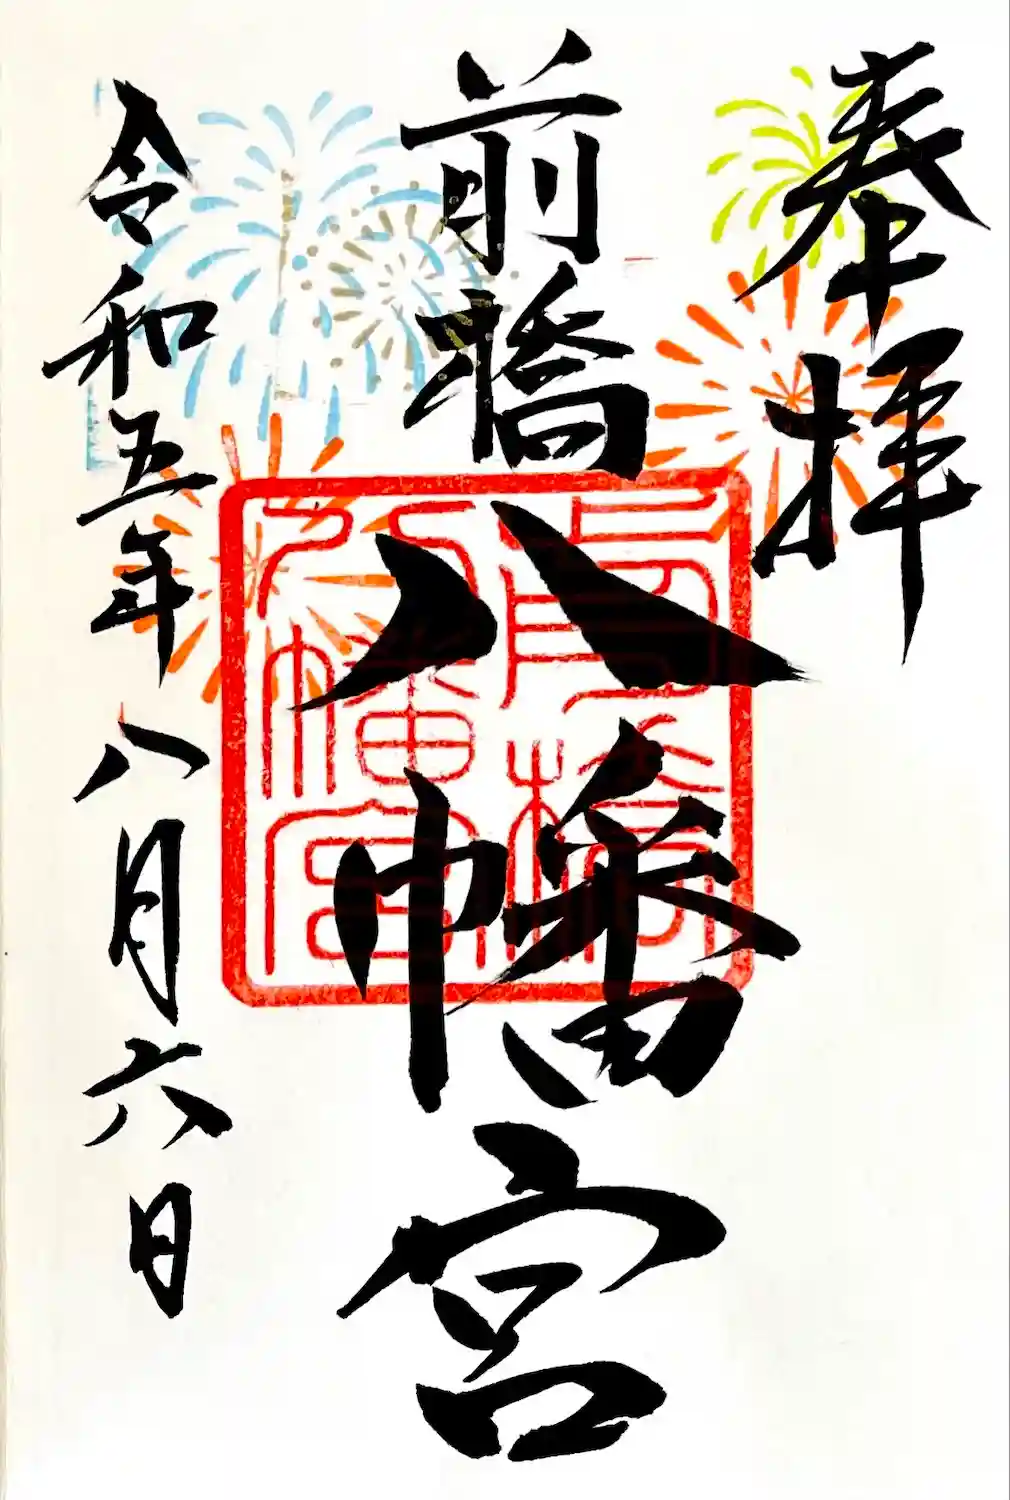 奉拝
前橋八幡宮
前橋
八幡宮
令和五年八月六日